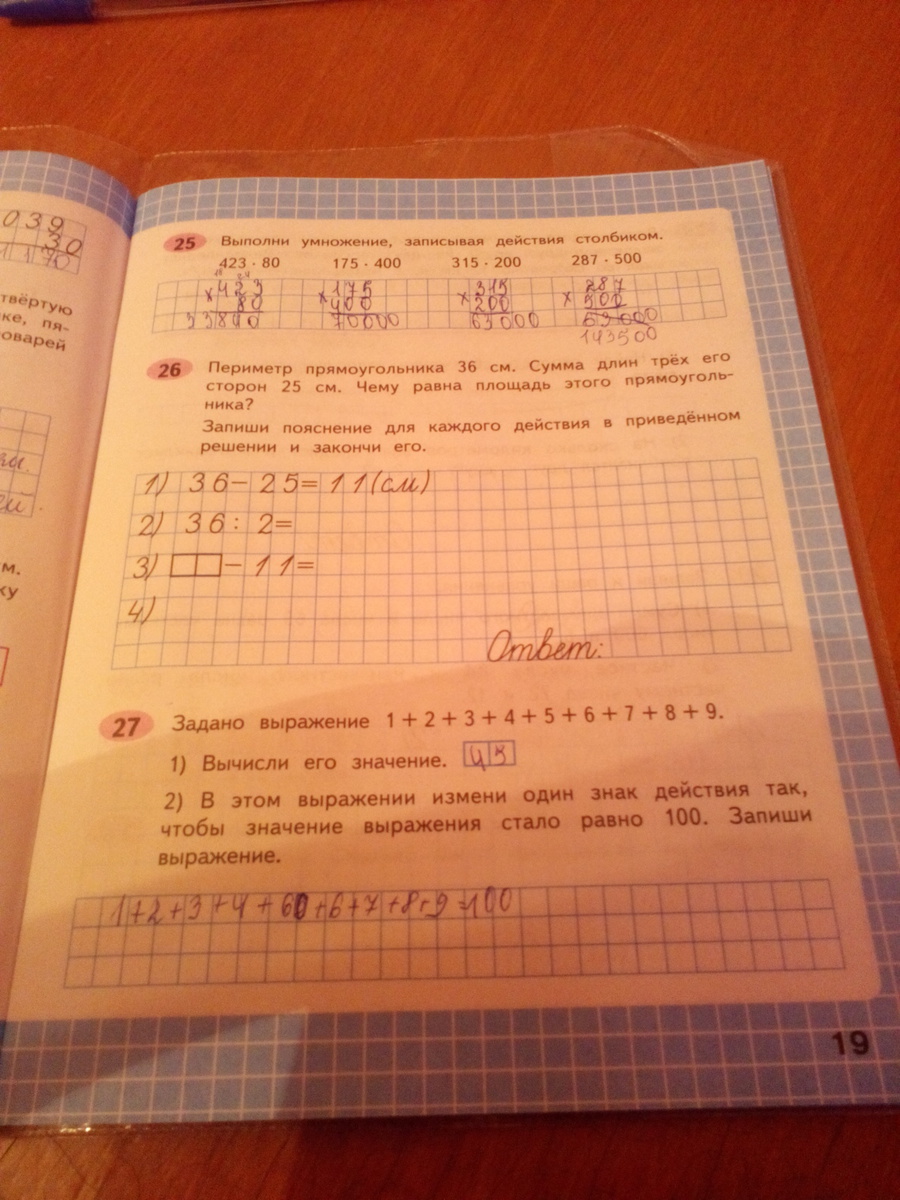 039
30
1 1 70
твёртую
ке, пя-
оварей
м.
ку
25 Выполни умножение, записывая действия столбиком.
423 · 80 175 · 400 315 · 200 287 · 500
×423 ×175 ×315 ×287
80 400 200 500
33840 70000 63000 63000
143500
26 Периметр прямоугольника 36 см. Сумма длин трёх его
сторон 25 см. Чему равна площадь этого прямоуголь-
ника?
Запиши пояснение для каждого действия в приведённом
решении и закончи его.
1) 36 − 25 = 11 (см)
2) 36 : 2 =
3) − 11 =
4)
Ответ:
27 Задано выражение 1 + 2 + 3 + 4 + 5 + 6 + 7 + 8 + 9.
1) Вычисли его значение. 45
2) В этом выражении измени один знак действия так,
чтобы значение выражения стало равно 100. Запиши
выражение.
1+2+3+4+60+6+7+8+9=100
19